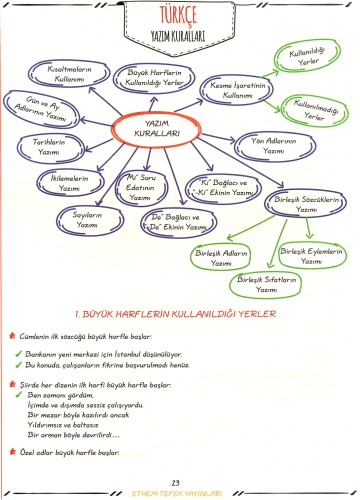 TÜRKÇE
YAZIM KURALLARI
Kısaltmaların
Kullanımı
Büyük Harflerin
Kullanıldığı Yerler
Kesme İşaretinin
Kullanımı
Kullanıldığı
Yerler
Kullanılmadığı
Yerler
Gün ve Ay
Adlarının Yazımı
YAZIM
KURALLARI
Tarihlerin
Yazımı
Yön Adlarının
Yazımı
İkilemelerin
Yazımı
"Mi" Soru
Edatının
Yazımı
"Ki" Bağlacı ve
"-Ki" Ekinin Yazımı
Birleşik Sözcüklerin
Yazımı
Sayıların
Yazımı
"De" Bağlacı ve
"-De" Ekinin Yazımı
Birleşik Adların
Yazımı
Birleşik Eylemlerin
Yazımı
Birleşik Sıfatların
Yazımı
1. BÜYÜK HARFLERİN KULLANILDIĞI YERLER
Cümlenin ilk sözcüğü büyük harfle başlar:
Bankanın yeni merkezi için İstanbul düşünülüyor.
Bu konuda, çalışanların fikrine başvurulmadı henüz.
Şiirde her dizenin ilk harfi büyük harfle başlar:
Ben zamanı gördüm.
İçimde ve dışımda sessiz çalışıyordu.
Bir mezar böyle kazılırdı ancak
Yıldırımsız ve baltasız
Bir orman böyle devrilirdi...
Özel adlar büyük harfle başlar:
23
ETHEM TEFEK YAYINLARI